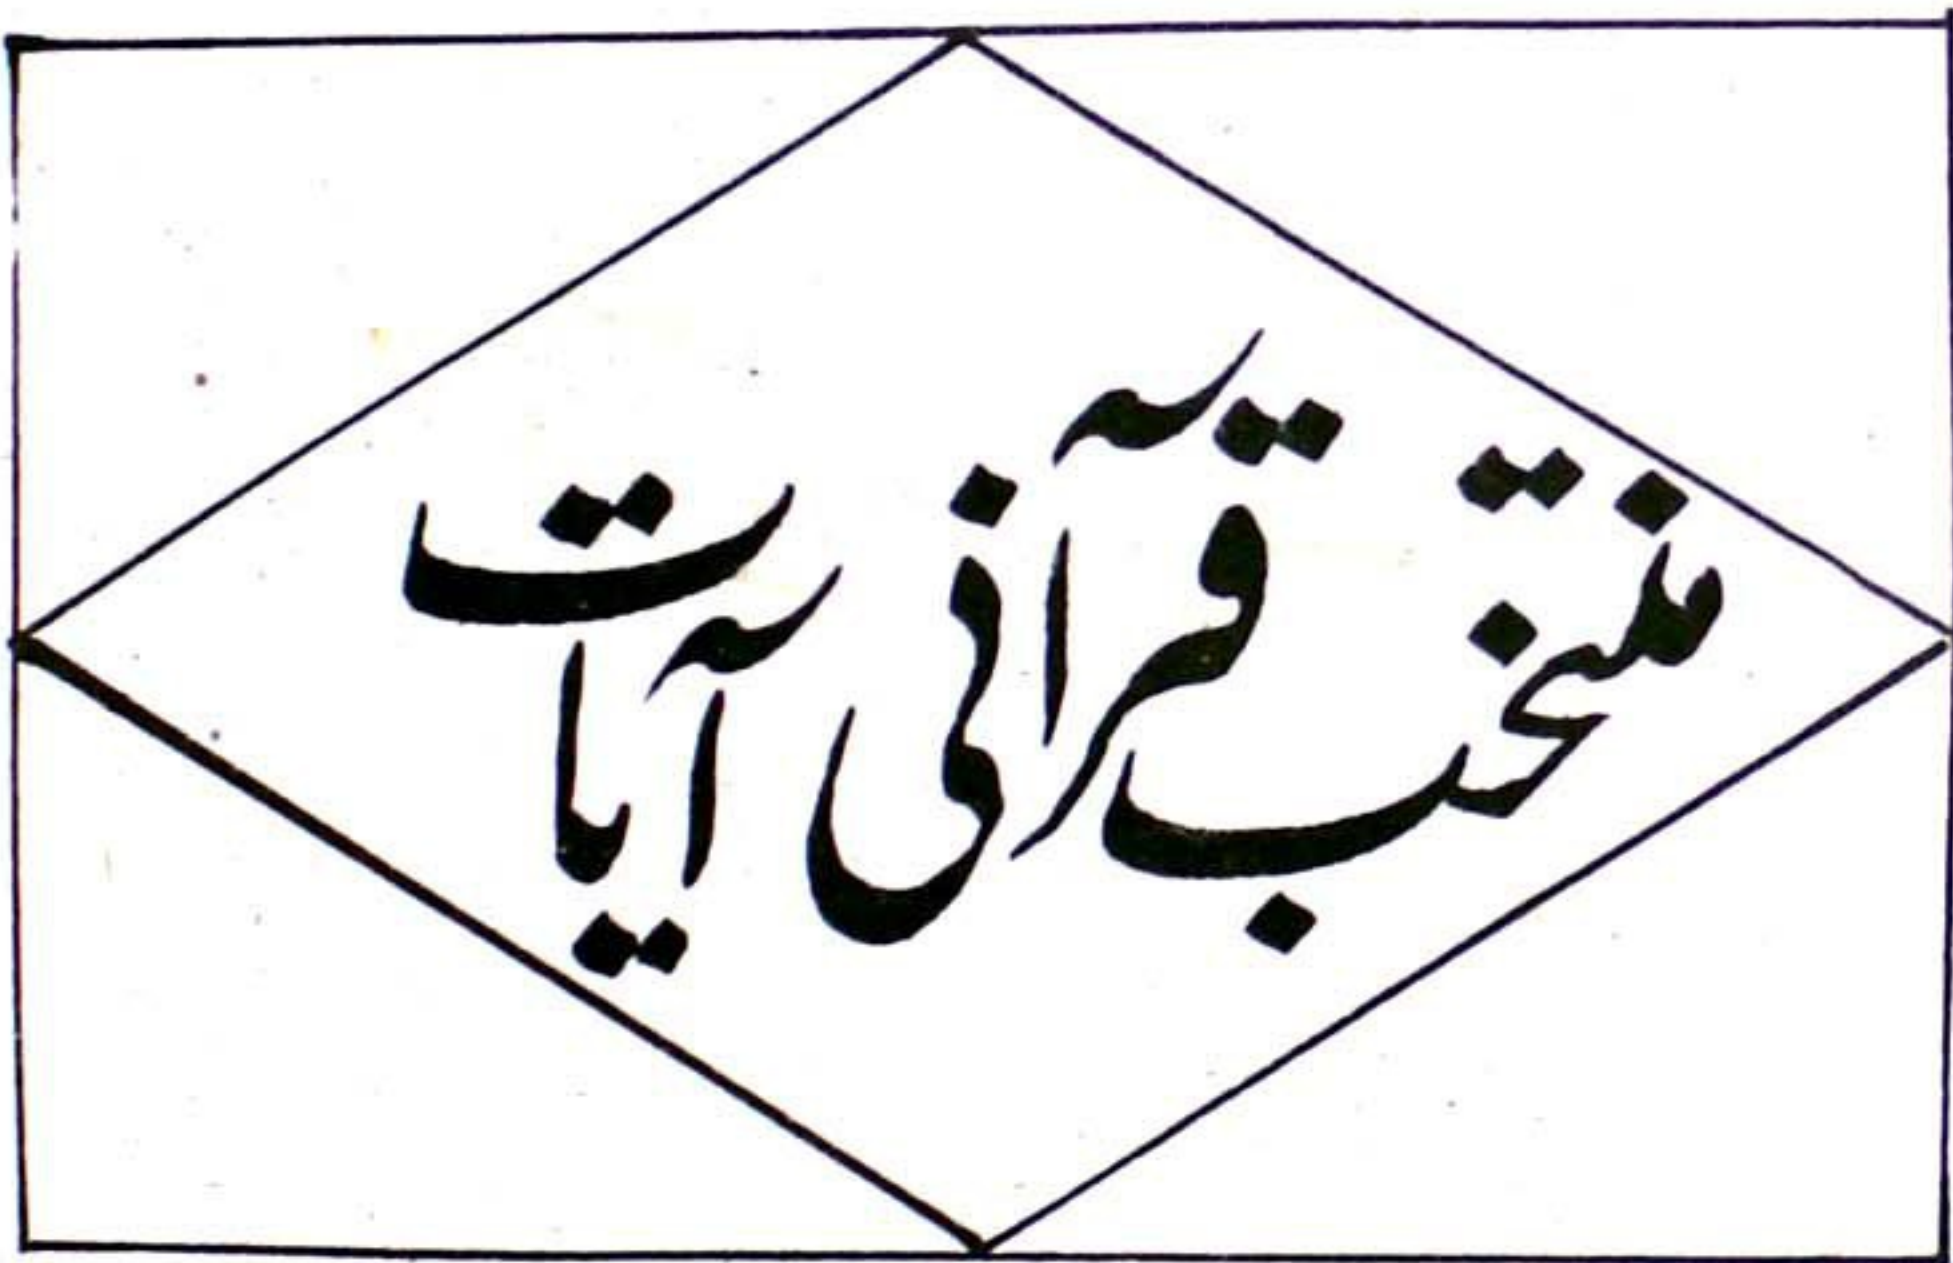 منتخب قرآنی آیات